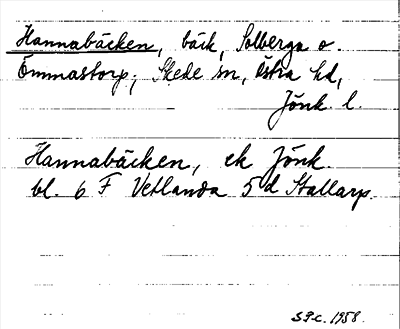 Hannabäcken, bäck, Solberga o.
Ömmastorp; Skede sn, Östra hd,
Jönk. l.
Hannabäcken, ek Jönk.
bl. 6 F Vetlanda 5d Stallarp.
S.F.c. 1958.